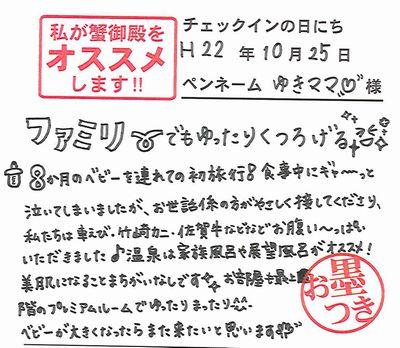 私が蟹御殿を
オススメ
します!!
チェックインの日にち
H22 年 10月 25日
ペンネーム ゆきママ♡ 様
ファミリーでもゆったりくつろげる
8か月のベビーを連れての初旅行!食事中にギャーっと
泣いてしまいましたが、お世話係の方がやさしく接してくださり、
私たちは車えび、竹崎カニ、佐賀牛などなどお腹い〜っぱい
いただきました♪温泉は家族風呂や展望風呂がオススメ!
美肌になることまちがいなしです お部屋も最上
階のプレミアムルームでゆったりまったり^^
ベビーが大きくなったらまた来たいと思います
お墨つき